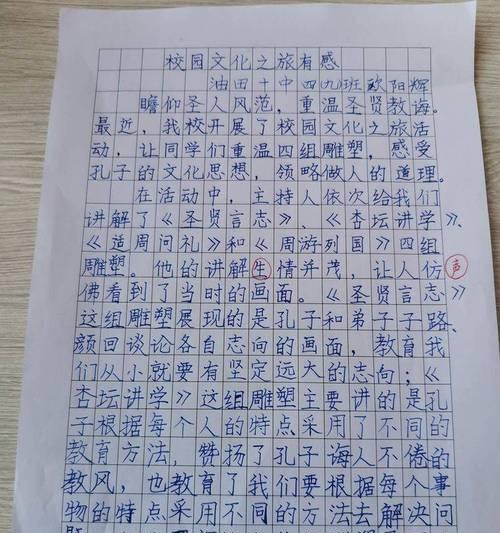 校园文化之旅有感
油田十中四(九)班 欧阳辉
瞻仰圣人风范，重温圣贤教诲。
最近，我校开展了校园文化之旅活
动，让同学们重温四组雕塑，感受
孔子的文化思想，领略做人的道理。
在活动中，主持人依次给我们
讲解了《圣贤言志》、《杏坛讲学》、
《适周问礼》和《周游列国》四组
雕塑。他的讲解生情并茂，让人仿 声
佛看到了当时的画面。《圣贤言志》
这组雕塑展现的是孔子和弟子子路、
颜回谈论各自志向的画面，教育我
们从小就要有坚定远大的志向；《
杏坛讲学》这组雕塑主要讲的是孔
子根据每个人的特点采用了不同的
教育方法，赞扬了孔子诲人不倦的
教风，也教育了我们要根据每个事
物的特点采用不同的方法去解决问